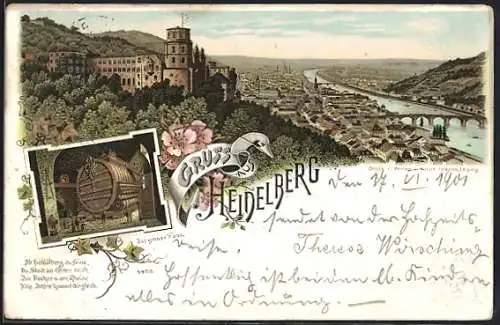 GRUSS
AUS
HEIDELBERG
Das grosse Fass.
Den 17. VI. 1901
sendet von der Hochzeits
reise. Theres Wirsching
Hoffentlich ist bei den lb. Kindern
alles in Ordnung.
Alt Heidelberg, du feine,
Du Stadt an Ehren reich,
Am Neckar u. am Rheine
Kein' andre kommt dir gleich.